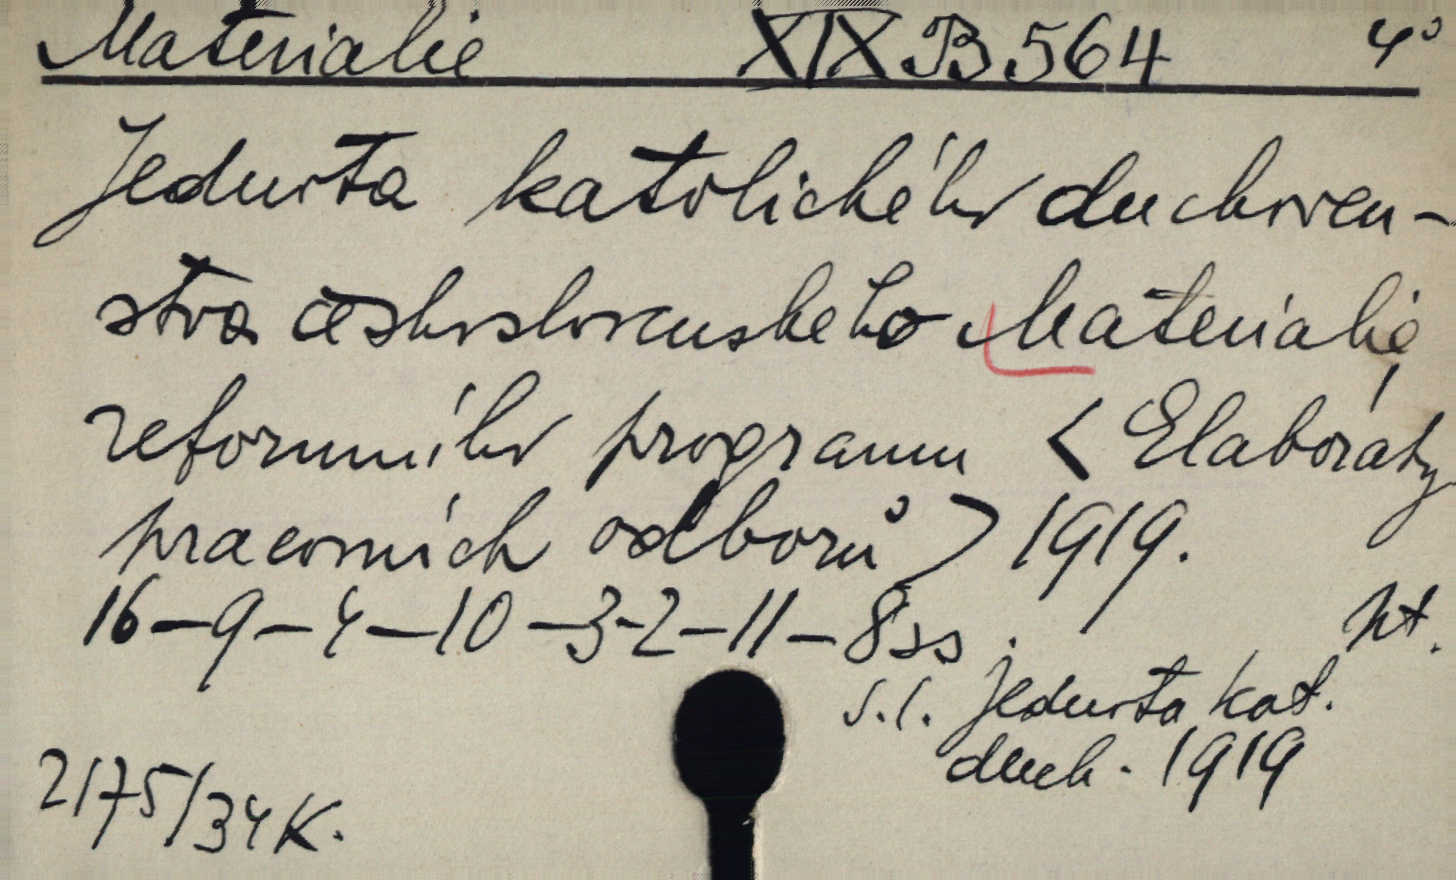 Materialie XIX B 564 4°
Jednota katolického duchoven-
stva československého Materialie
reformního programu < Elaboráty
pracovních odborů > 1919.
16-9-4-10-3-2-11-8 ss. pt.
s.l. Jednota kat.
duch. 1919
2175/34 K.